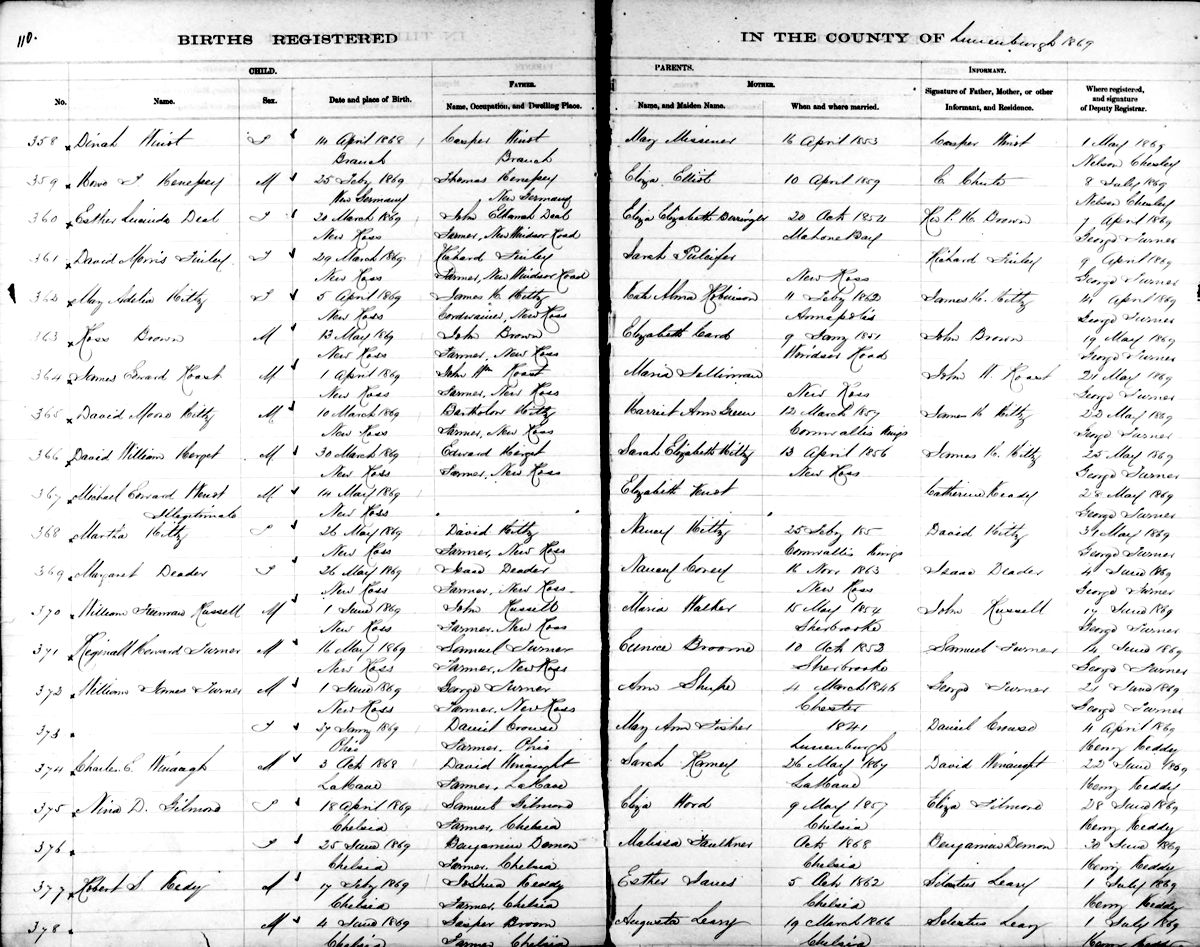 110.
BIRTHS REGISTERED IN THE COUNTY OF Lunenburgh 1869
CHILD. PARENTS. INFORMANT.
FATHER. MOTHER.
No. Name. Sex. Date and place of Birth. Name, Occupation, and Dwelling Place. Name, and Maiden Name. When and where married. Signature of Father, Mother, or other Informant, and Residence. Where registered, and signature of Deputy Registrar.
358 Dinah Wust F 14 April 1868 Casper Wust Mary Missener 16 April 1853 Casper Wust 1 May 1869
Branch Branch Nelson Chesley
359 M 25 Feby 1869 Thomas Eliza Elliot 10 April 1859 C. Chute 8 July 1869
New Germany New Germany Nelson Chesley
360 Esther Lucinda Deal F 20 March 1869 John Deal Eliza Elizabeth 20 Oct 1854 Brown 7 April 1869
New Ross Farmer, New Windsor Road Mahone Bay George Turner
361 David Morris Finley F 29 March 1869 Richard Finley Sarah Richard Finley 9 April 1869
New Ross Farmer, New Windsor Road New Ross George Turner
362 May Adelia Kiltz F 5 April 1869 James R. Kiltz Kate Alma Robinson 11 Feby 1862 James R. Kiltz 14 April 1869
New Ross Cordwainer, New Ross Annapolis George Turner
363 Ross Brown M 13 May 1869 John Brown Elizabeth Card 9 Jany 1851 John Brown 19 May 1869
New Ross Farmer, New Ross Windsor Road George Turner
364 James Edward Roast M 1 April 1869 John Wm Roast Maria John W. Roast 21 May 1869
New Ross Farmer, New Ross New Ross George Turner
365 David Moore Kiltz M 10 March 1869 Bartholow Kiltz Harriet Ann Green 12 March 1857 James R Kiltz 22 May 1869
New Ross Farmer, New Ross Cornwallis Kings George Turner
366 David William Kerget M 30 March 1869 Edward Kerget Sarah Elizabeth Kiltz 13 April 1856 James R. Kiltz 25 May 1869
New Ross Farmer, New Ross New Ross George Turner
367 Michael Edward Wust M 14 May 1869 " Elizabeth Wust " Catherine Keady 28 May 1869
Illegitimate New Ross George Turner
368 Martha Kiltz F 26 May 1869 David Kiltz Nancy Kiltz 25 Feby 185 David Kiltz 31 May 1869
New Ross Farmer, New Ross Cornwallis Kings George Turner
369 Margaret Deader F 26 May 1869 Isaac Deader Nancy Corey 16 Nov 1863 Isaac Deader 4 June 1869
New Ross Farmer, New Ross New Ross George Turner
370 William Freeman Russell M 1 June 1869 John Russell Maria Walker 15 May 1854 John Russell 17 June 1869
New Ross Farmer, New Ross Sherbrooke George Turner
371 Reginald Howard Turner M 16 May 1869 Samuel Turner Eunice Broome 10 Oct 1852 Samuel Turner 14 June 1869
New Ross Farmer, New Ross Sherbrooke George Turner
372 William James Turner M 1 June 1869 George Turner Ann Shupe 4 March 1846 George Turner 21 June 1869
New Ross Farmer, New Ross Chester George Turner
373 F 27 Jany 1869 Daniel Crouse Mary Ann Fisher 1841 Daniel Crouse 4 April 1869
Ohio Farmer, Ohio Lunenburgh Henry Keddy
374 Charles E. Winaugh M 3 Oct 1868 David Winaught Sarah Ramey 26 May 1867 David Winaught 22 June 1869
LaHave Farmer, LaHave LaHave Henry Keddy
375 Nina D. Filmore F 18 April 1869 Samuel Filmore Eliza Hord 9 May 1857 Eliza Filmore 28 June 1869
Chelsia Farmer, Chelsia Chelsia Henry Keddy
376 F 25 June 1869 Benjamin Demon Malissa Faulkner Oct 1868 Benjamin Demon 30 June 1869
Chelsia Farmer, Chelsia Chelsia Henry Keddy
377 Robert S. Kedy 17 Feby 1869 Joshua Keddy Esther 5 Oct 1862 Leary 1 July 1869
Chelsia Farmer, Chelsia Chelsia Henry Keddy
378 M 4 June 1869 Broom Augusta Leary 19 March 1866 Leary 1 July 1869
Chelsia Farmer Chelsia Chelsia Henry Keddy